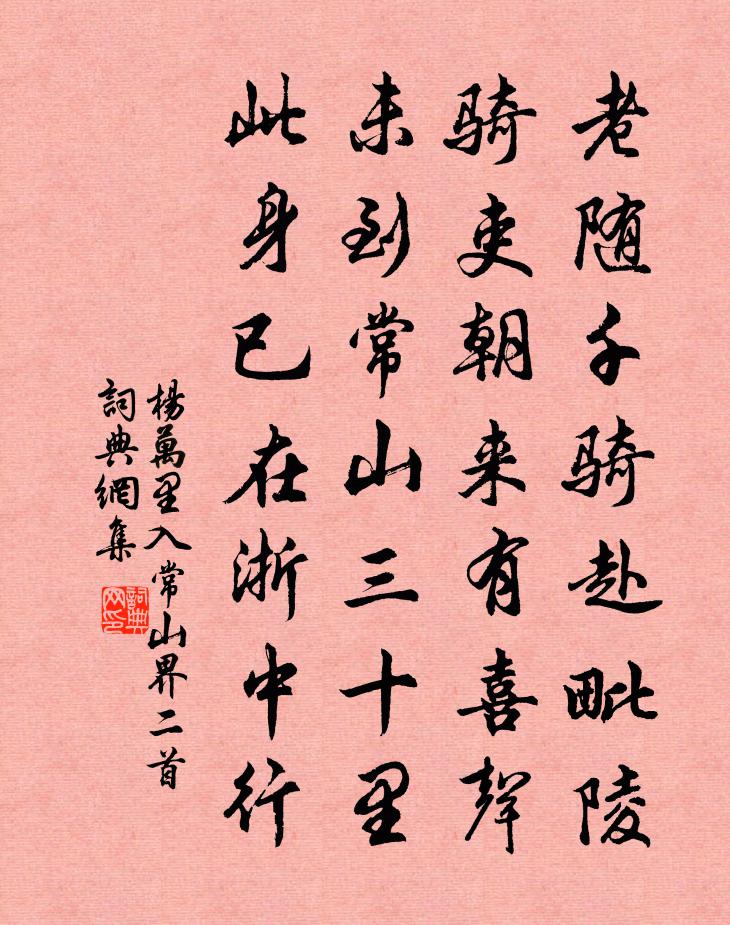 老随千骑赴毗陵
骑吏朝来有喜聲
未到常山三十里
此身已在浙中行
楊萬里入常山界二首
詞典網集
詞典网印